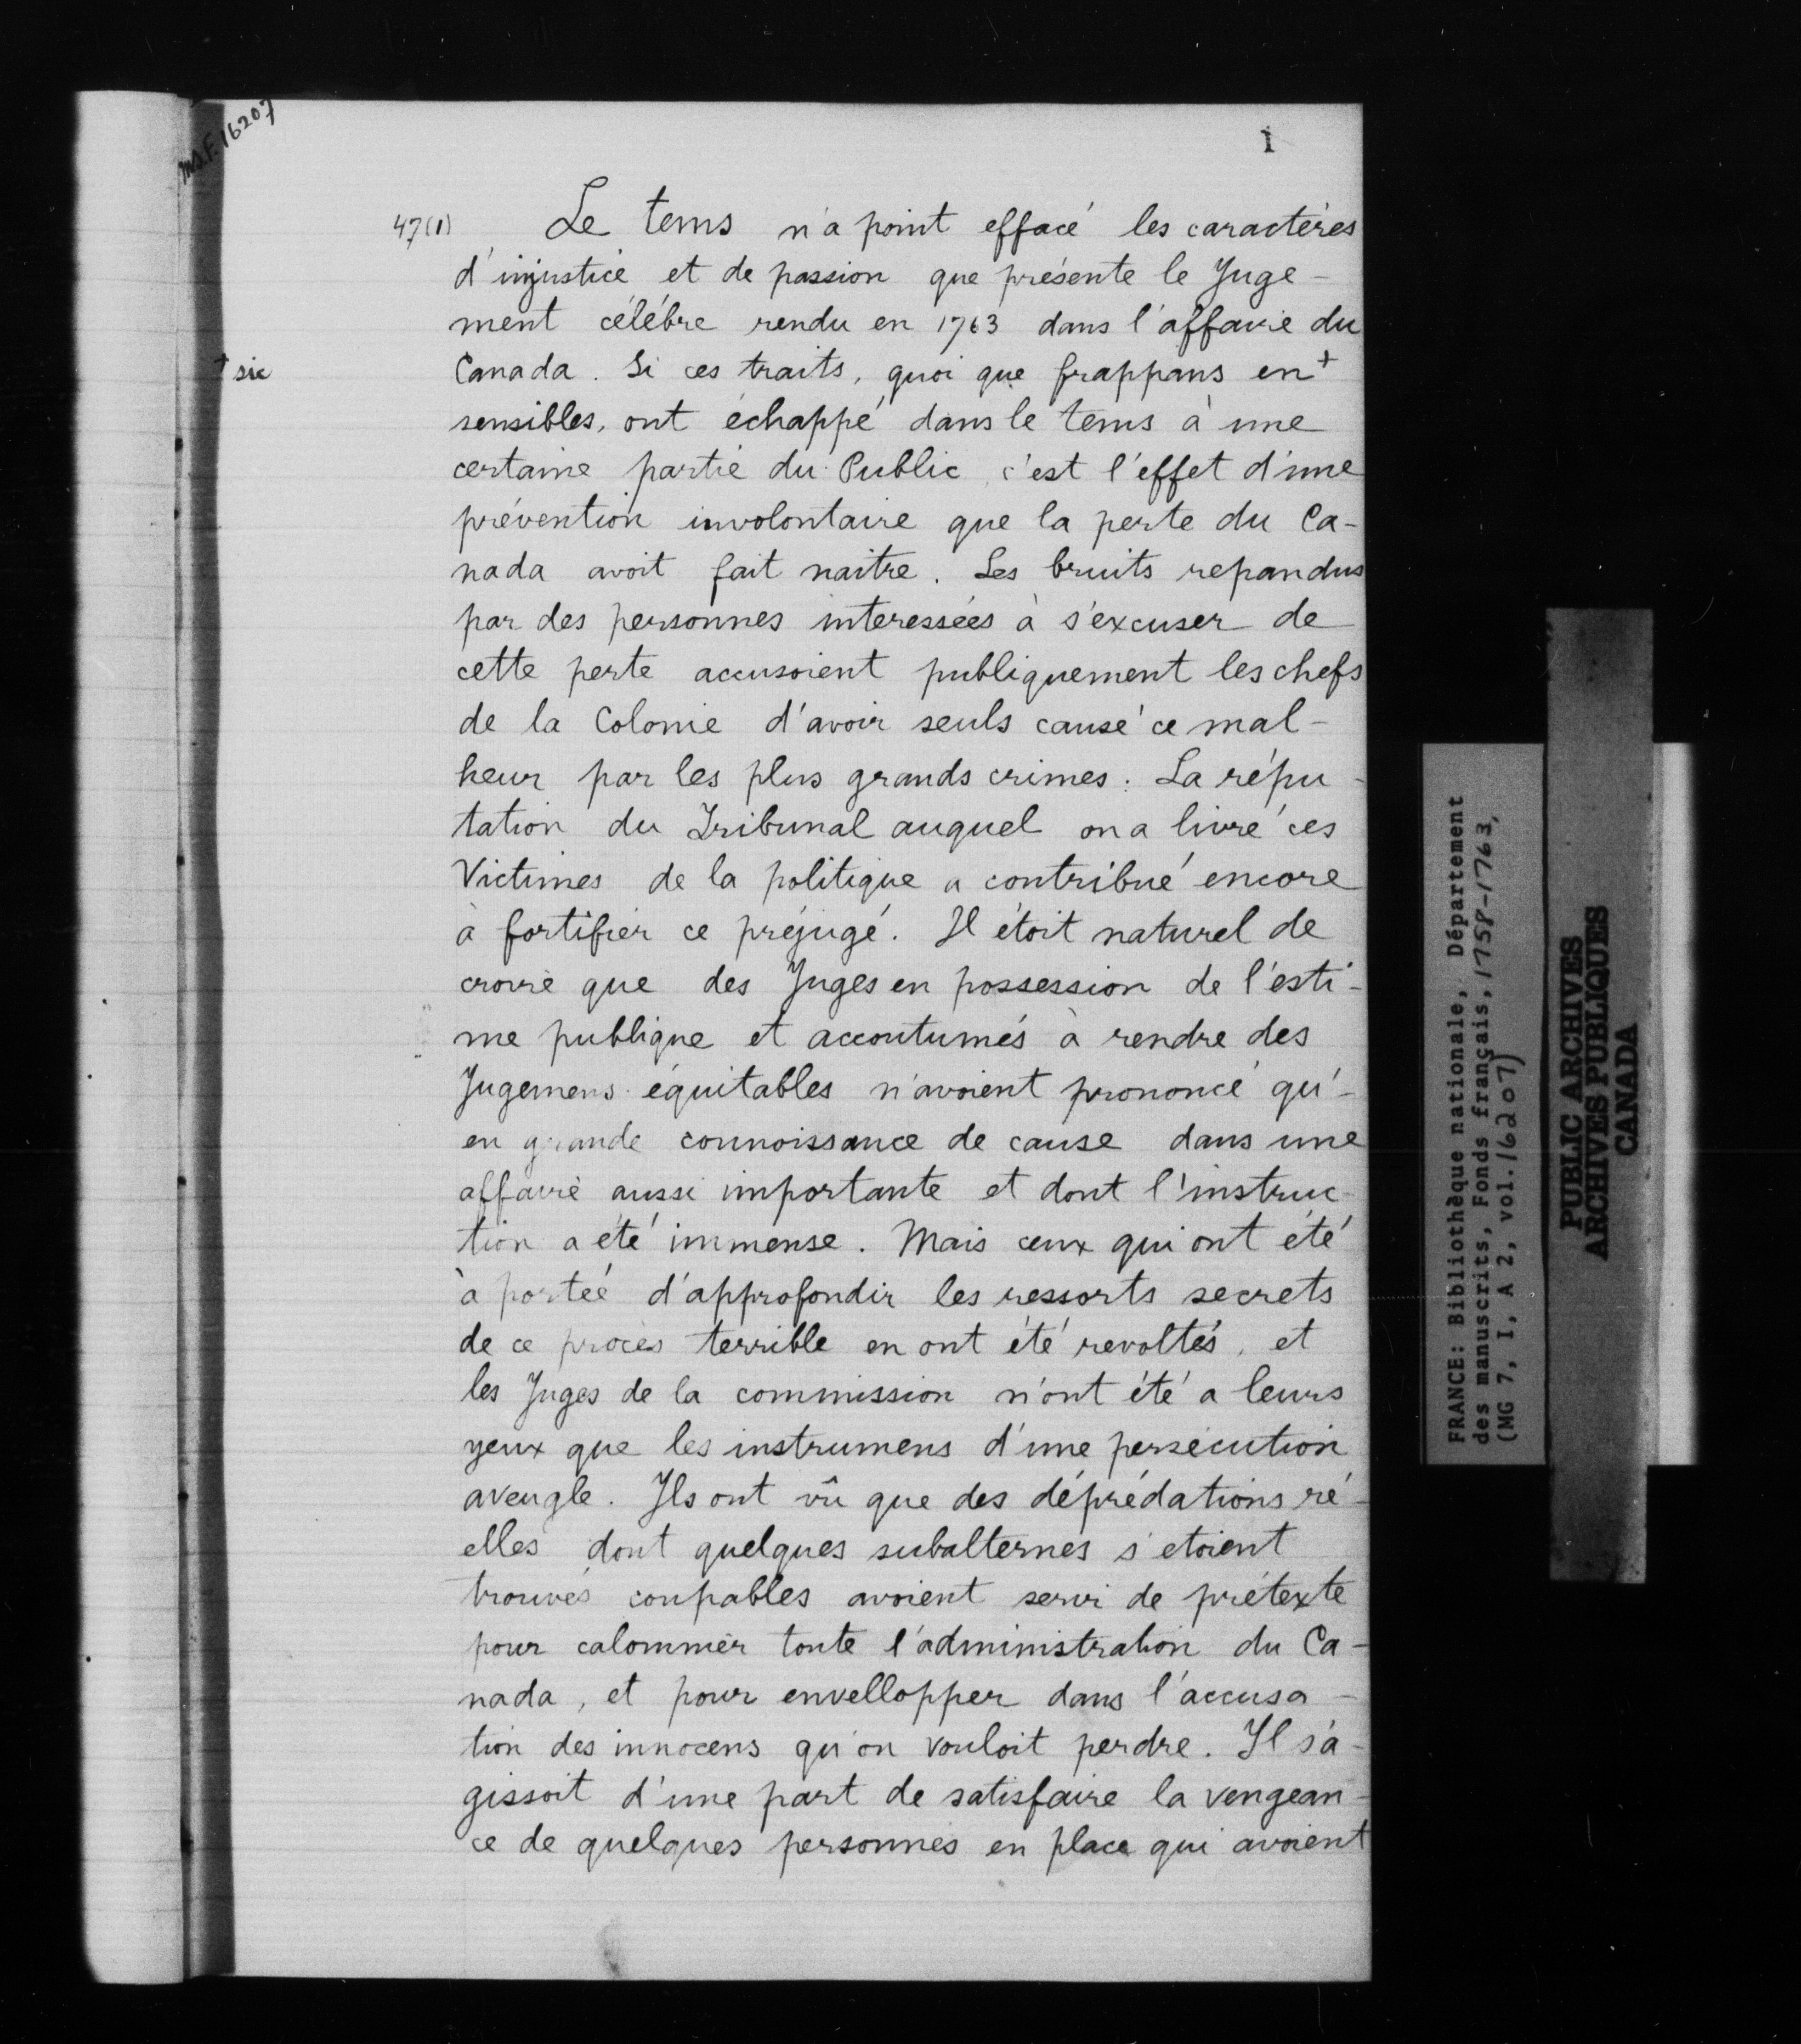 ms.F. 16207
1
47(1) Le tems n'a point effacé les caractères
d'injustice et de passion que présente le Juge-
ment célébre rendu en 1763 dans l'affaire du
+ sic Canada. Si ces traits, quoi que frappans en +
sensibles, ont échappé dans le tems à une
certaine partie du Public, c'est l'effet d'une
prévention involontaire que la perte du Ca-
nada avoit fait naitre. Les bruits repandus
par des personnes interessées à s'excuser de
cette perte accusoient publiquement les chefs
de la Colonie d'avoir seuls causé ce mal-
heur par les plus grands crimes: La répu-
tation du Tribunal auquel on a livré ces
Victimes de la politique a contribué encore
à fortifier ce préjugé. Il étoit naturel de
croire que des Juges en possession de l'esti-
me publique et accoutumés à rendre des
Jugemens équitables n'avoient prononcé qu'-
en grande connoissance de cause dans une
affaire aussi importante et dont l'instruc-
tion a été immense. Mais ceux qui ont été
à portée d'approfondir les ressorts secrets
de ce procès terrible en ont été revoltés, et
les Juges de la commission n'ont été a leurs
yeux que les instrumens d'une persécution
aveugle. Ils ont vû que des déprédations ré-
elles dont quelques subalternes s'etoient
trouvés coupables avoient servi de prétexte
pour calomnier toute l'administration du Ca-
nada, et pour envellopper dans l'accusa-
tion des innocens qu'on vouloit perdre. Il s'a-
gissoit d'une part de satisfaire la vengean-
ce de quelques personnes en place qui avoient
FRANCE: Bibliothèque nationale, Département
des manuscrits, Fonds français, 1758-1763,
(MG 7, I, A 2, vol. 16207)
PUBLIC ARCHIVES
ARCHIVES PUBLIQUES
CANADA